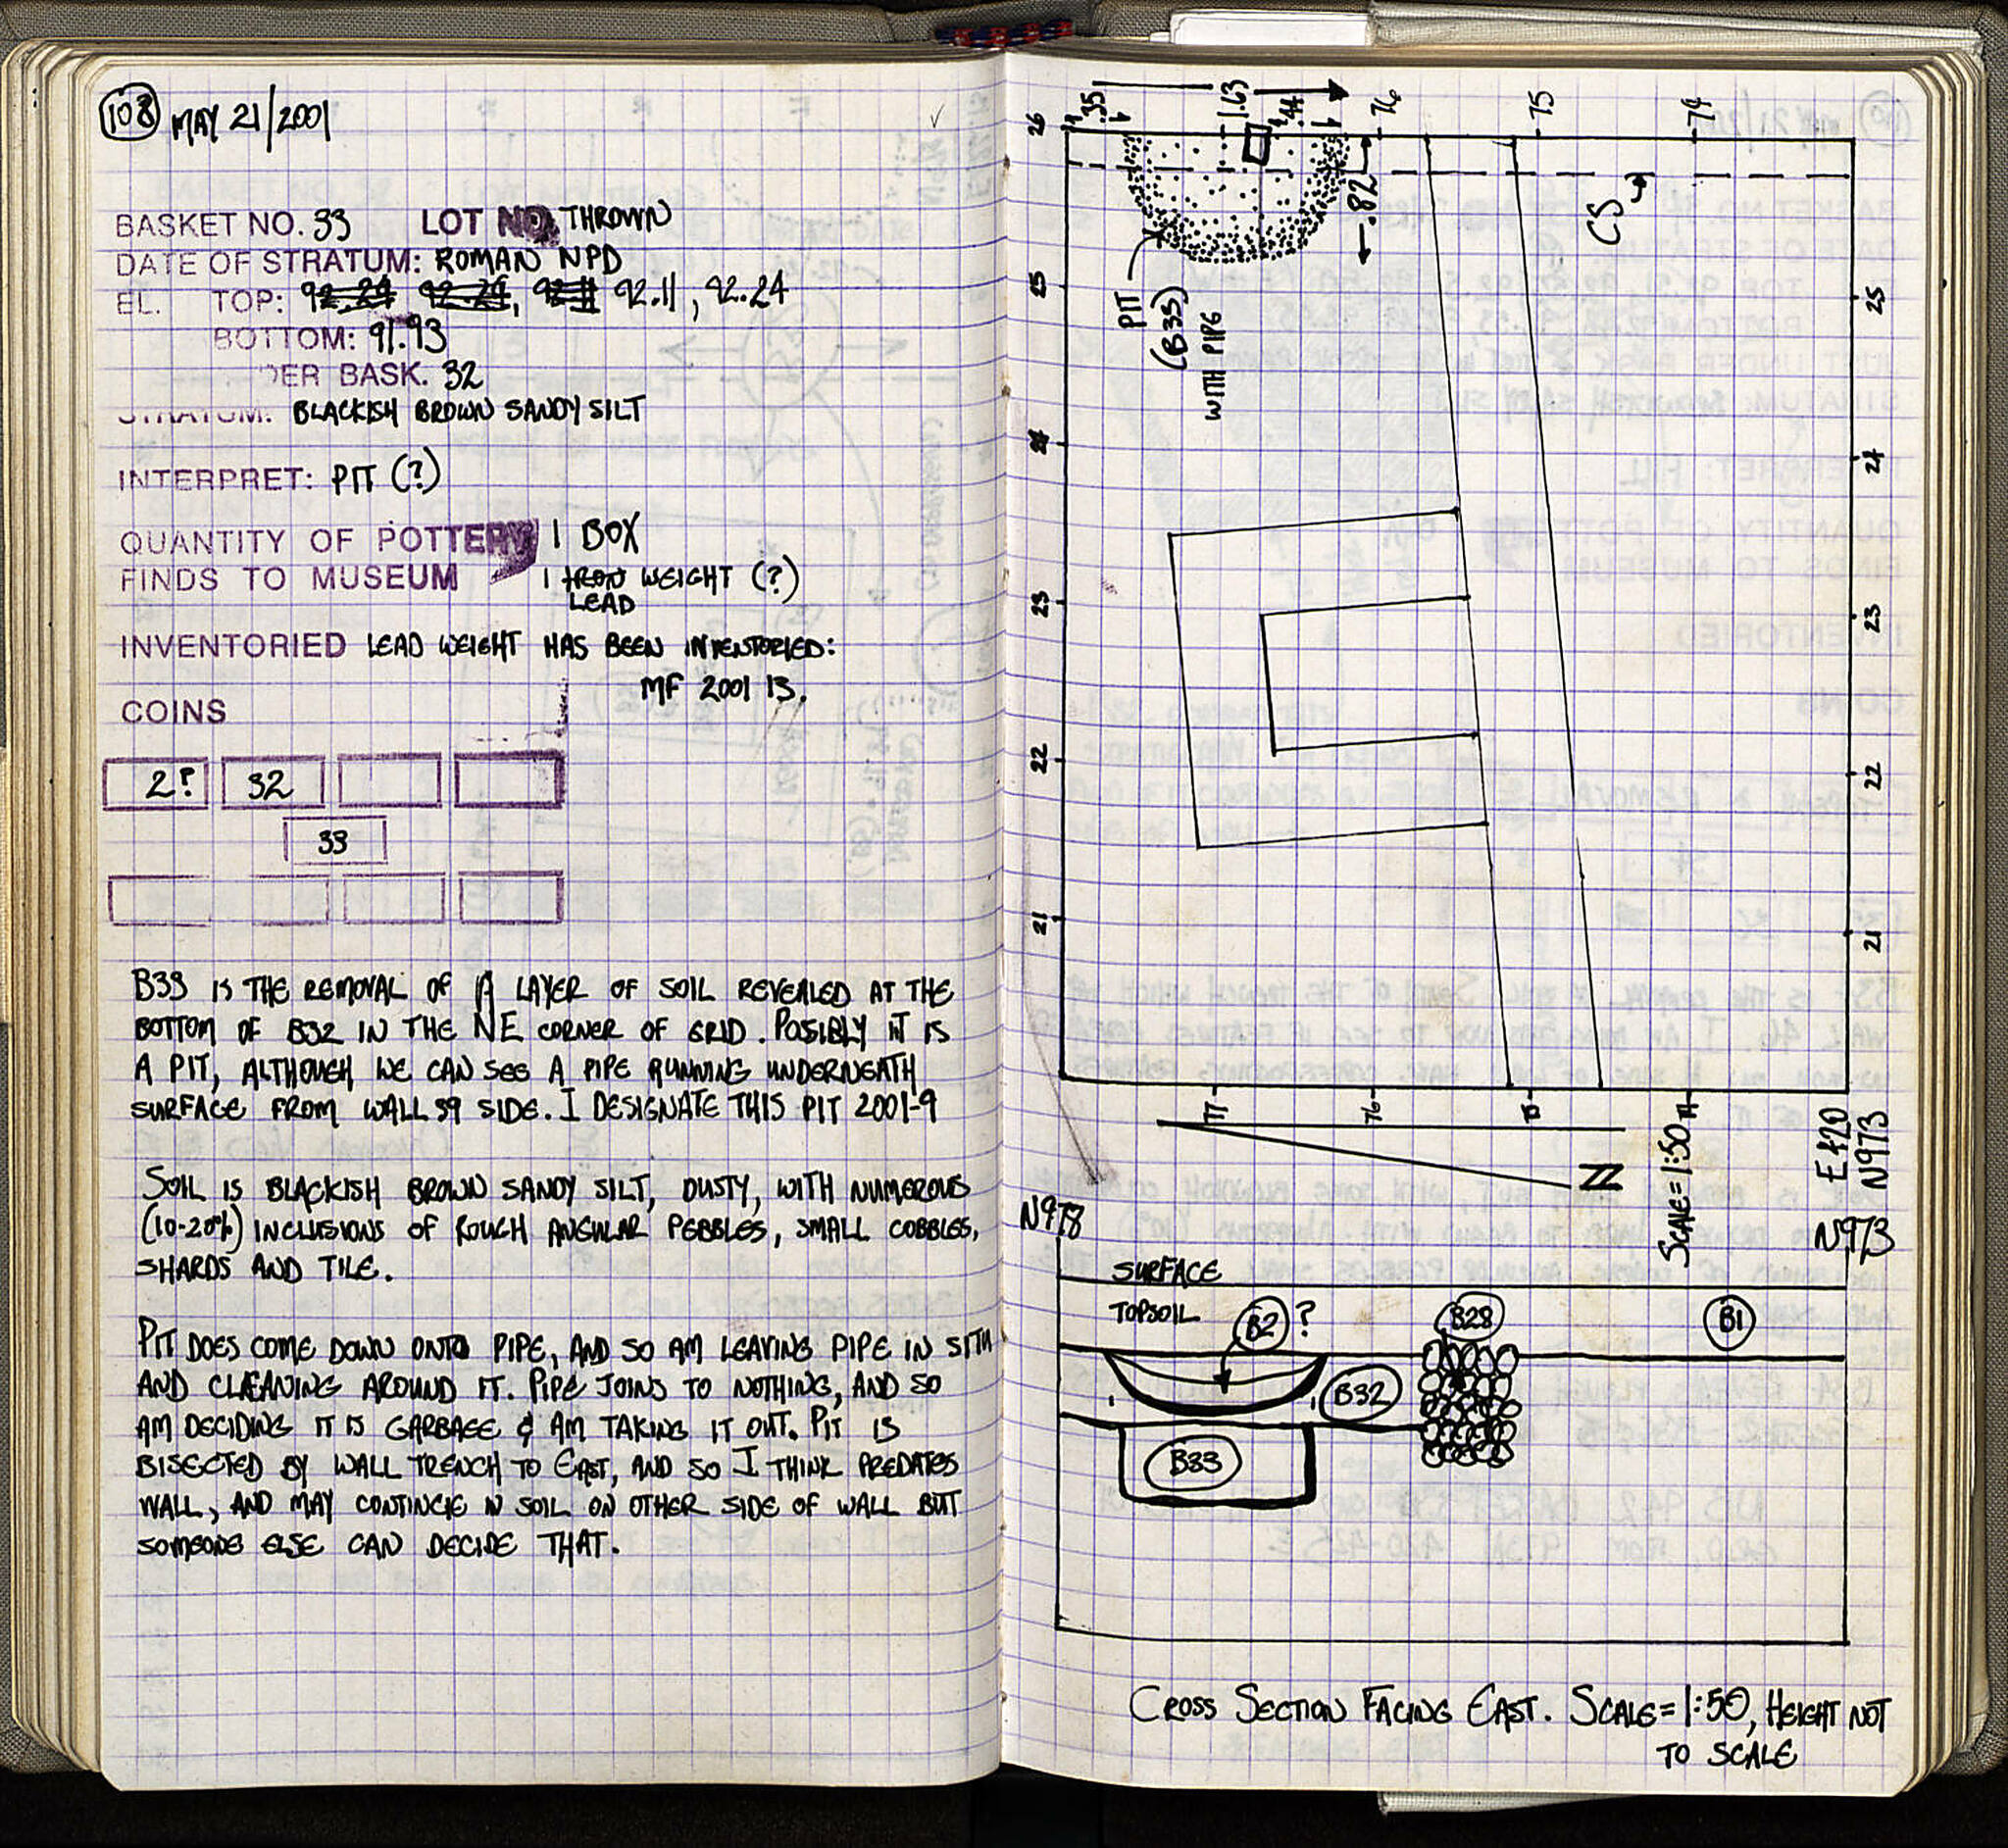 108 MAY 21/2001
BASKET NO. 33 LOT NO. THROWN
DATE OF STRATUM: ROMAN NPD
EL. TOP: 92.24 92.24, 92.11 92.11, 92.24
BOTTOM: 91.93
DER BASK. 32
STRATUM: BLACKISH BROWN SANDY SILT
INTERPRET: PIT (?)
QUANTITY OF POTTERY 1 BOX
FINDS TO MUSEUM 1 IRON WEIGHT (?)
LEAD
INVENTORIED LEAD WEIGHT HAS BEEN INVENTORIED:
MF 2001 13.
COINS
2? 32
33
B33 IS THE REMOVAL OF A LAYER OF SOIL REVEALED AT THE
BOTTOM OF B32 IN THE NE CORNER OF GRID. POSIBLY IT IS
A PIT, ALTHOUGH WE CAN SEE A PIPE RUNNING UNDERNEATH
SURFACE FROM WALL 39 SIDE. I DESIGNATE THIS PIT 2001-9
SOIL IS BLACKISH BROWN SANDY SILT, DUSTY, WITH NUMEROUS
(10-20%) INCLUSIONS OF ROUGH ANGULAR PEBBLES, SMALL COBBLES,
SHARDS AND TILE.
PIT DOES COME DOWN ONTO PIPE, AND SO AM LEAVING PIPE IN SITU
AND CLEANING AROUND IT. PIPE JOINS TO NOTHING, AND SO
AM DECIDING IT IS GARBAGE & AM TAKING IT OUT. PIT IS
BISECTED BY WALL TRENCH TO EAST, AND SO I THINK PREDATES
WALL, AND MAY CONTINUE IN SOIL ON OTHER SIDE OF WALL BUT
SOMEONE ELSE CAN DECIDE THAT.
.35 1.63 .44 76 75 74
26
.82
CS
25 25
PIT
(B33)
WITH PIPE
24 24
23 23
22 22
21 21
77 76 75 74
N
SCALE=1:50
E420
N973
N978 N973
SURFACE
TOPSOIL B2 ? B28 B1
B32
B33
CROSS SECTION FACING EAST. SCALE=1:50, HEIGHT NOT
TO SCALE